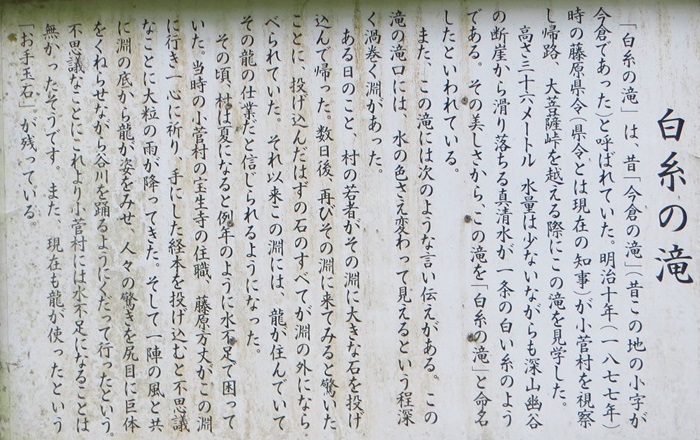 白糸の滝
「白糸の滝」は、昔「今倉の滝」（昔この地の小字が
今倉であった）と呼ばれていた。明治十年（一八七七年）
時の藤原県令（県令とは現在の知事）が小菅村を視察
し帰路、大菩薩峠を越える際にこの滝を見学した。
高さ三十六メートル　水量は少ないながらも深山幽谷
の断崖から滑り落ちる真清水が一条の白い糸のよう
である。その美しさから、この滝を「白糸の滝」と命名
したといわれている。
また、この滝には次のような言い伝えがある。この
滝の滝口には、水の色さえ変わって見えるという程深
く渦巻く淵があった。
ある日のこと、村の若者がその淵に大きな石を投げ
込んで帰った。数日後、再びその淵に来てみると驚いた
ことに、投げ込んだはずの石のすべてが淵の外になら
べられていた。それ以来この淵には、龍が住んでいて
その龍の仕業だと信じられるようになった。
その頃、村は夏になると例年のように水不足で困って
いた。当時の小菅村の宝生寺の住職、藤原方丈がこの淵
に行き一心に祈り、手にした経本を投げ込むと不思議
なことに大粒の雨が降ってきた。そして一陣の風と共
に淵の底から龍が姿をみせ、人々の驚きを尻目に巨体
をくねらせながら谷川を踊るようにくだって行ったという。
不思議なことにこれより小菅村には水不足になることは
無かったそうです。また、現在も龍が使ったという
「お手玉石」が残っている。